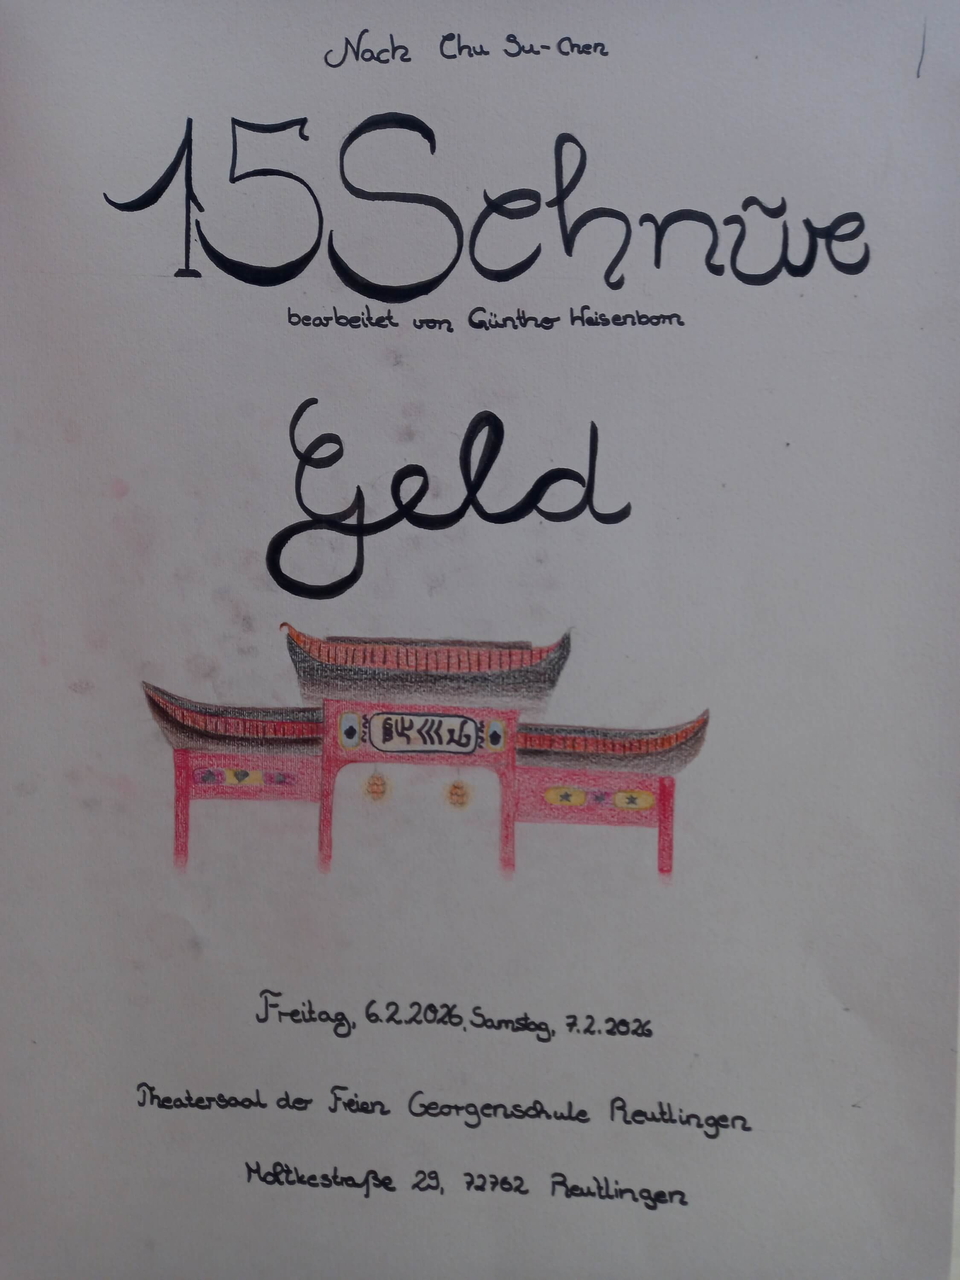 Nach Chu Su-Chen
15 Schnüre
bearbeitet von Günther Weisenborn
Geld
Freitag, 6.2.2026, Samstag, 7.2.2026
Theatersaal der Freien Georgenschule Reutlingen
Moltkestraße 29, 72762 Reutlingen